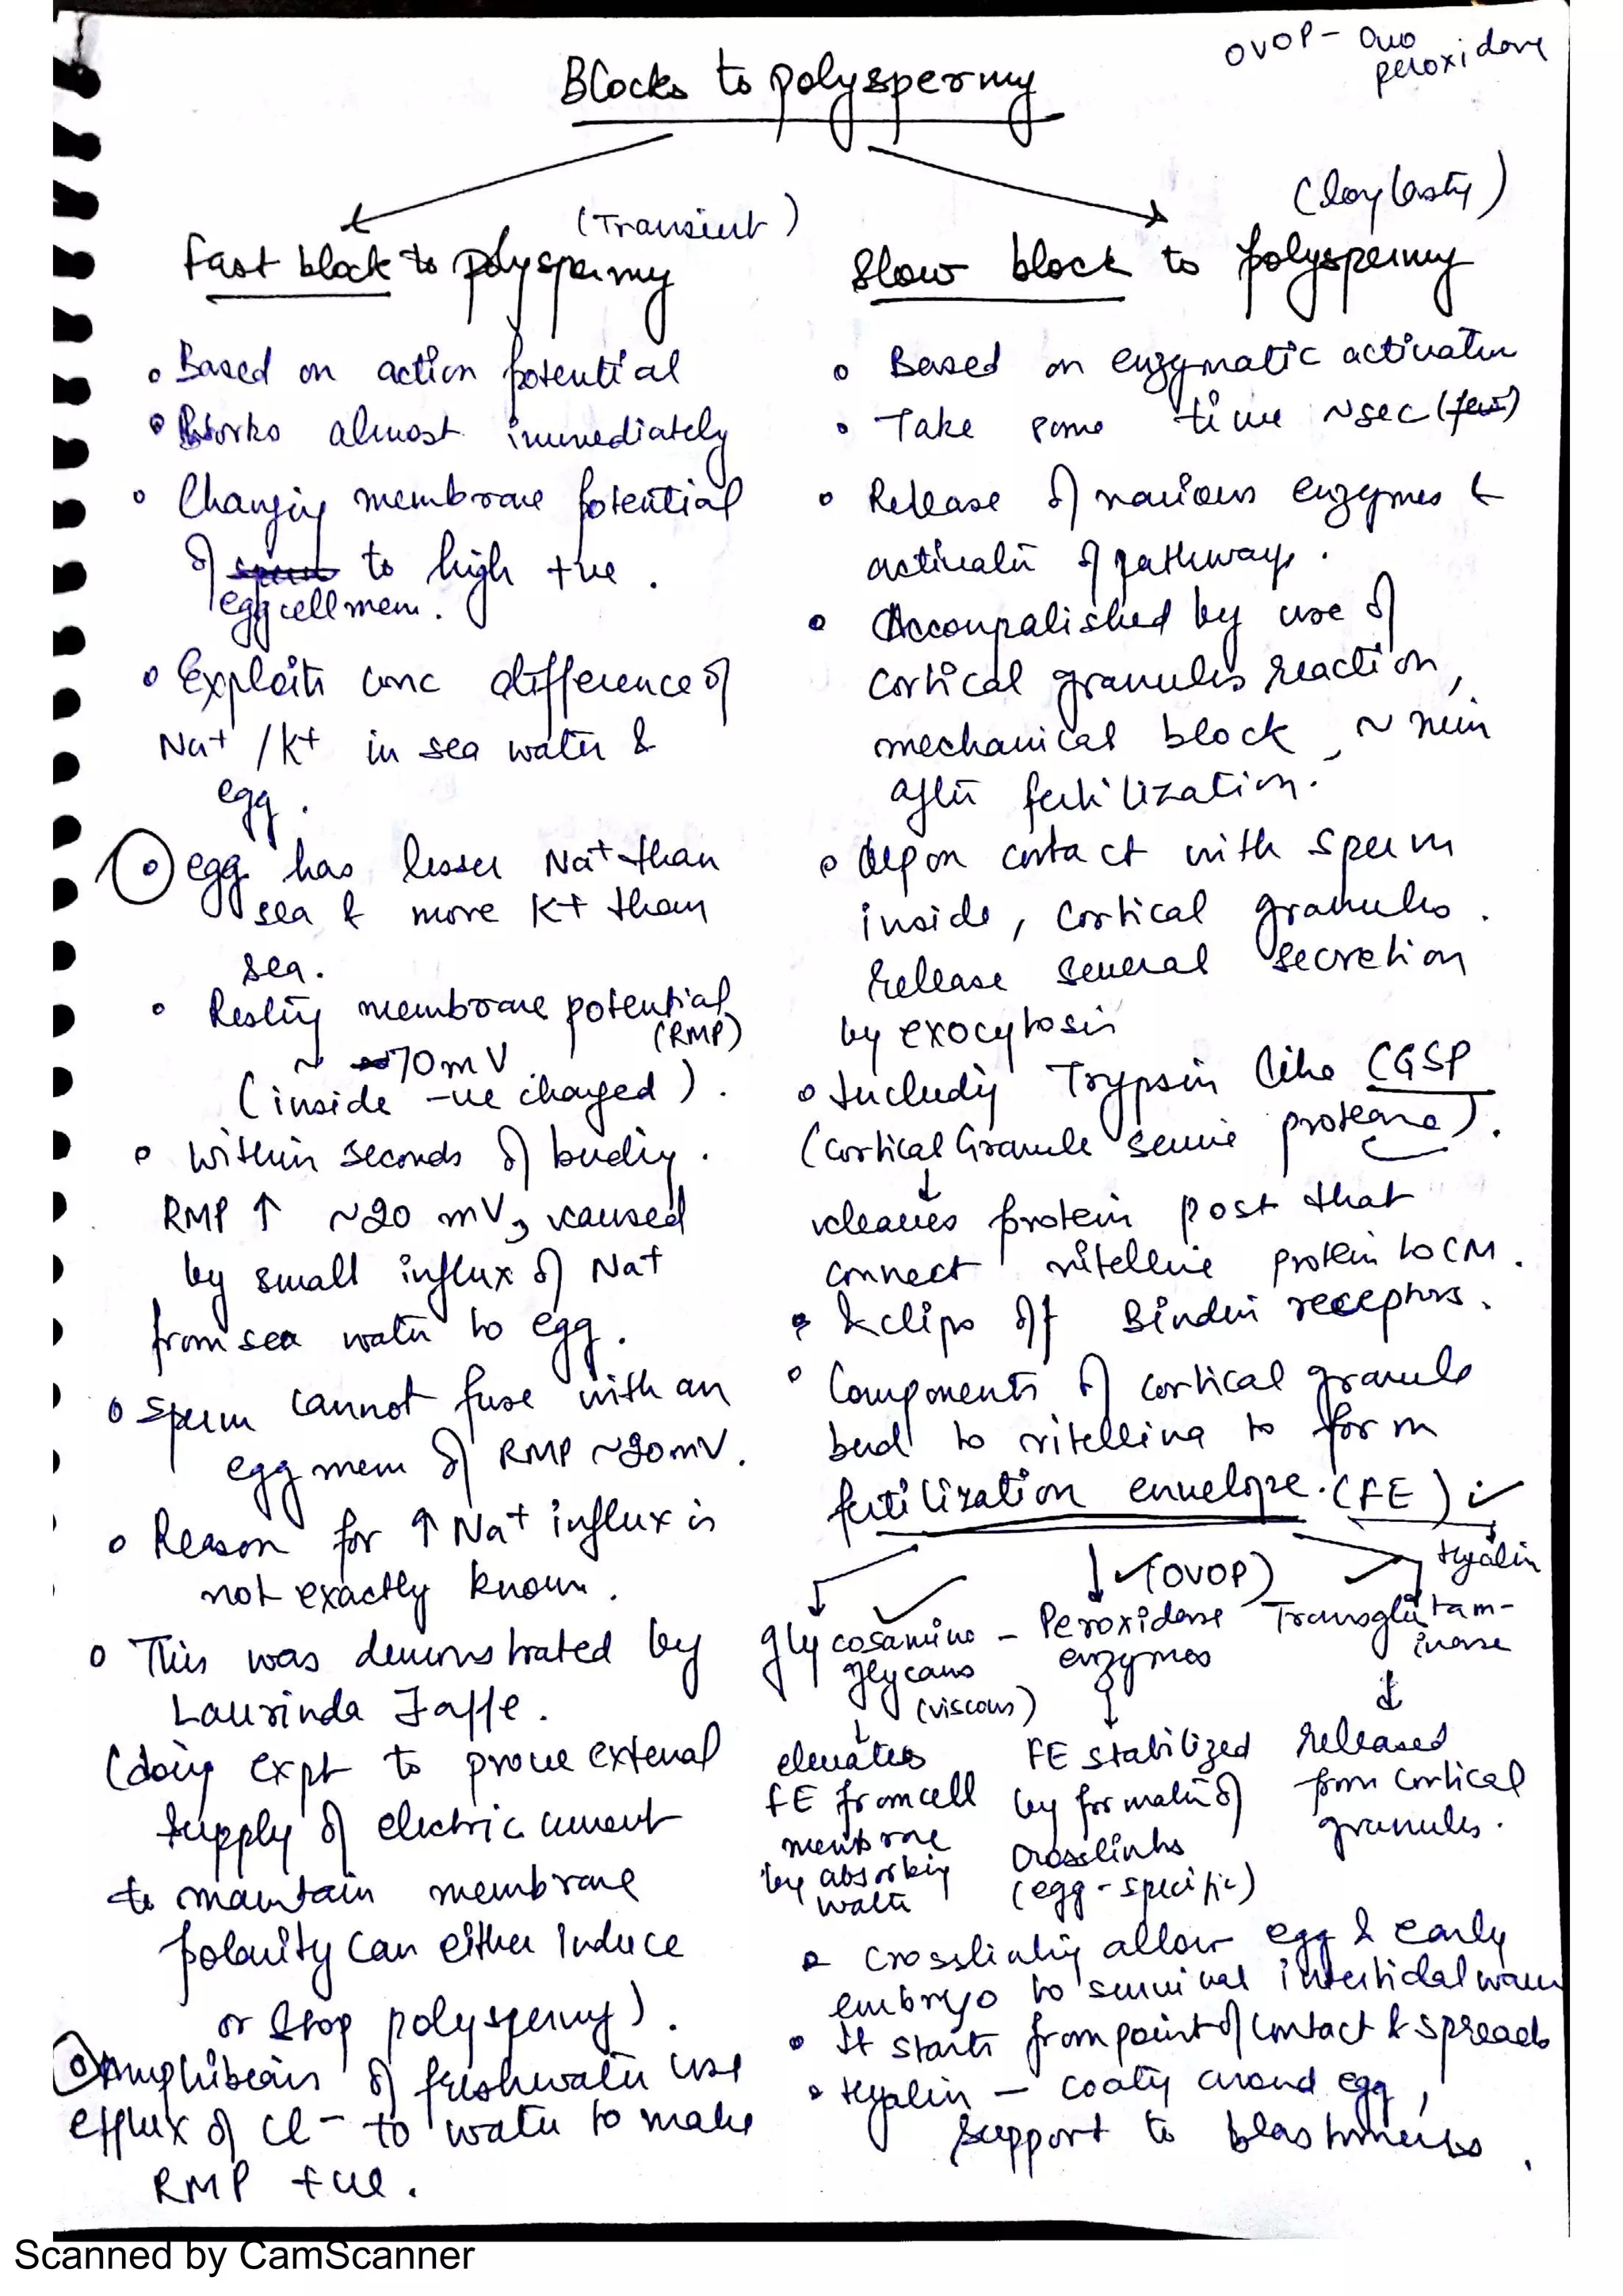 OVOP - Ovo
peroxidase
Blocks to polyspermy
(Transient)
Fast block to polyspermy
• Based on action potential
• Works almost immediately
• Changing membrane potential
of to high +ve.
egg cell mem.
• Exploits conc difference of
Na+ /K+ in sea water &
egg.
• egg has lesser Na+ than
sea & more K+ than
sea.
• Resting membrane potential
(RMP)
~ 70mV
(inside -ve charged).
• Within seconds of binding.
RMP ↑ ~20 mV, caused
by small influx of Na+
from sea water to egg.
• Sperm cannot fuse with an
egg mem of RMP ~20mV.
• Reason for ↑ Na+ influx is
not exactly known.
• This was demonstrated by
Laurinda Jaffe.
(doing expt to prove external
supply of electric current
to maintain membrane
polarity can either induce
or stop polyspermy).
• Amphibians of freshwater use
efflux of Cl- to water to make
RMP +ve.
(long lasting)
Slow block to polyspermy
• Based on enzymatic activation
• Take some time ~sec (few)
• Release of various enzymes &
activatn of pathways.
• Accompalished by use of
cortical granules reaction,
mechanical block, ~ min
after fertilization.
• Upon contact with sperm
inside, cortical granules.
release several secretion
by exocytosis
• Including Trypsin like CGSP
(Cortical Granule serine protease).
↓
cleaves protein post that
connect vitelline protein to CM.
• & clips off Bindin receptors.
• Components of cortical granule
bind to vitelline to form
fertilization envelope. (FE)
Hyalin
(OVOP)
glycosamino - Peroxidase Transglutam-
glycans enzymes inase
(viscous)
elevates FE stabilized released
FE from cell by formatn of from cortical
membrane crosslinks granules.
by absorbing (egg-specific)
water
• Crosslinking allow egg & early
embryo to survival intertidal waves
• It starts from point of contact & spreads
• Hyalin - coating around egg,
support to blastomeres.
Scanned by CamScanner